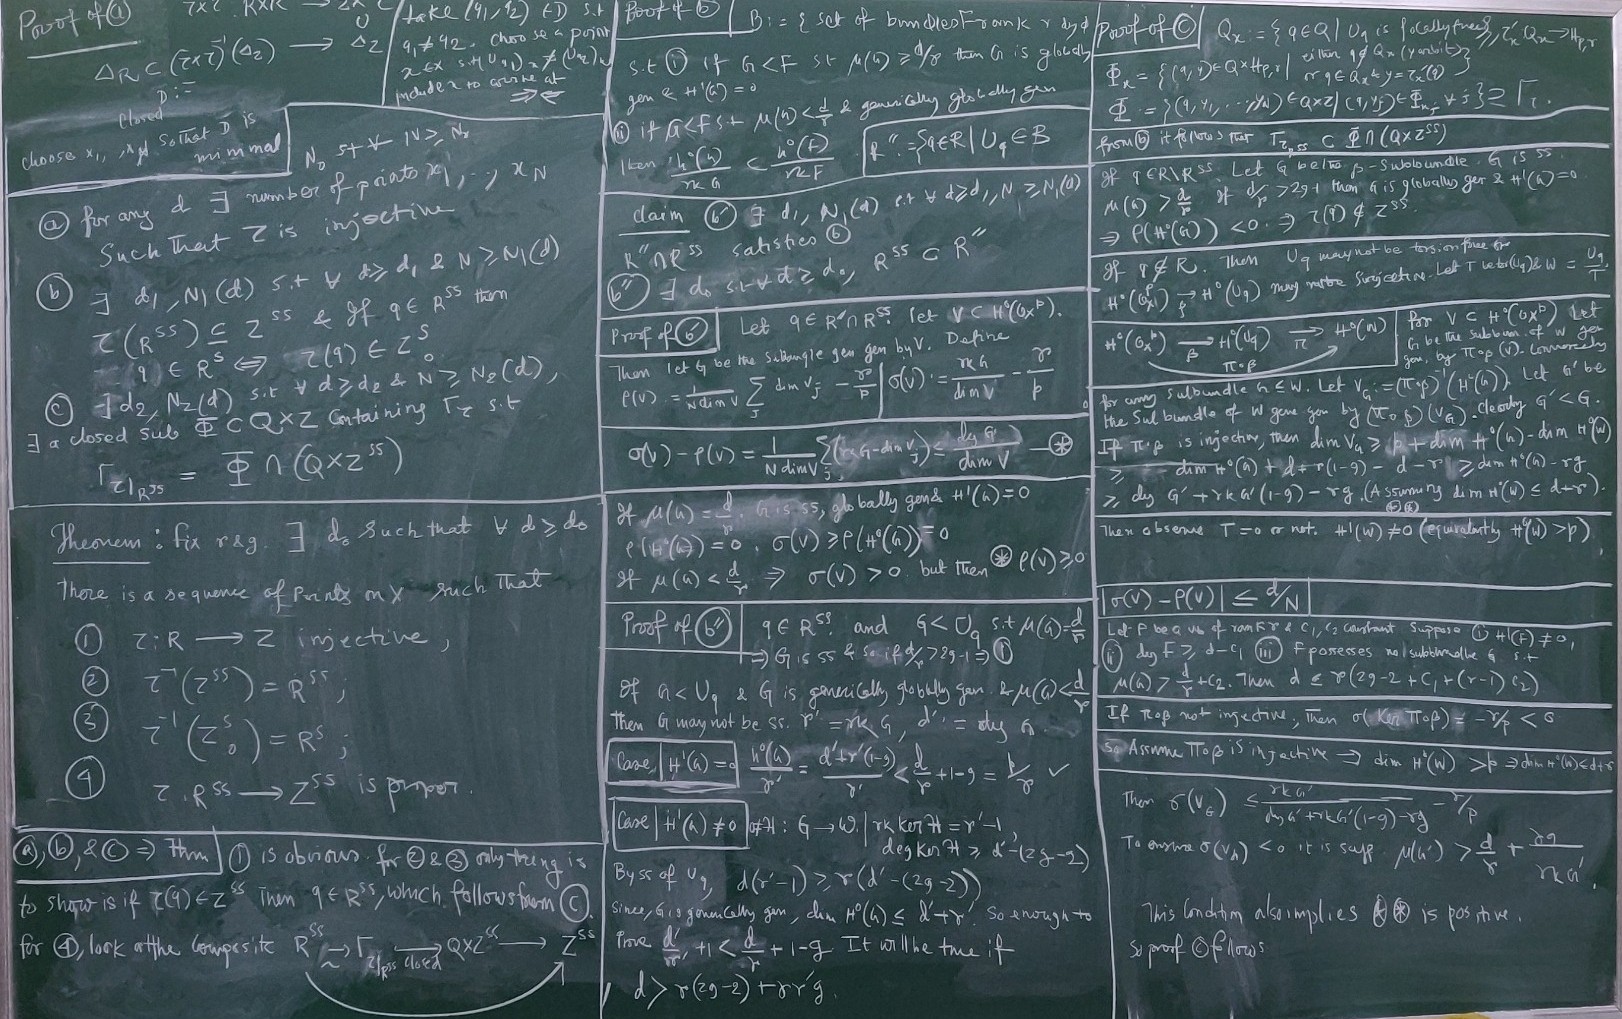 Proof of ⓐ
τ×τ : R×R → Z×Z
∪
(τ×τ)⁻¹(Δ_Z) → Δ_Z
Δ_R ⊂
D :=
closed
choose x₁, .., x_N so that D is
minimal
take (q₁, q₂) ∈ D s.t
q₁ ≠ q₂. choose a point
x ∈ X s.t (U_{q₁})_x ≠ (U_{q₂})_x
include x to arrive at
⇒⇐
N₀ s.t ∀ N ≥ N₀
ⓐ for any d ∃ number of points x₁, ..., x_N
Such that τ is injective
ⓑ ∃ d₁, N₁(d) s.t ∀ d ≥ d₁ & N ≥ N₁(d)
τ(R^{ss}) ⊆ Z^{ss} & If q ∈ R^{ss} then
q ∈ R^s ⟺ τ(q) ∈ Z^s_0
ⓒ ∃ d₂, N₂(d) s.t ∀ d ≥ d₂ & N ≥ N₂(d),
∃ a closed sub Φ ⊂ Q×Z containing Γ_τ s.t
Γ_{τ|R^{ss}} = Φ ∩ (Q×Z^{ss})
Theorem : fix r & g. ∃ d₀ such that ∀ d ≥ d₀
There is a sequence of points on X such that
① τ : R → Z injective,
② τ⁻¹(Z^{ss}) = R^{ss};
③ τ⁻¹(Z^s_0) = R^s;
④ τ : R^{ss} → Z^{ss} is proper.
ⓐ, ⓑ, & ⓒ ⇒ Thm
① is obvious. for ② & ③ only thing is
to show is if τ(q) ∈ Z^{ss} Then q ∈ R^{ss}, which follows from ⓒ.
for ④, look at the composite R^{ss} →~ Γ_{τ|R^{ss}} ↪ closed Q×Z^{ss} → Z^{ss}
Proof of ⓑ
B := { set of bundles F rank r deg d
s.t ⓘ if G < F s.t μ(G) ≥ d/r then G is globally
gen & H¹(G) = 0
ⓘⓘ if G < F s.t μ(G) < d/r & generically globally gen
then h⁰(G)/rk G < h⁰(F)/rk F
R'' := {q ∈ R | U_q ∈ B
claim ⓑ' ∃ d₁, N₁(d) s.t ∀ d ≥ d₁, N ≥ N₁(d)
R'' ∩ R^{ss} satisfies ⓑ
ⓑ'' ∃ d₀ s.t ∀ d ≥ d₀, R^{ss} ⊂ R''
Proof of ⓑ'
Let q ∈ R'' ∩ R^{ss}. let V ⊂ H⁰(O_X^p).
Then let G be the subbundle gen gen by V. Define
ρ(V) := 1/(N dim V) Σ_j dim V_j − r/p
σ(V) := rk G/dim V − r/p
σ(V) − ρ(V) = 1/(N dim V) Σ_j (rk G − dim V_j) ≤ deg G/dim V — ⊛
If μ(G) = d/r, G is ss, globally gen & H¹(G) = 0
ρ(H⁰(G)) = 0, σ(V) ≥ ρ(H⁰(G)) = 0
If μ(G) < d/r ⇒ σ(V) > 0 but then ⊛ ρ(V) ≥ 0
Proof of ⓑ''
q ∈ R^{ss}. and G < U_q s.t μ(G) = d/r
⇒ G is ss & so if d/r > 2g−1 ⇒ ⓘ
If G < U_q & G is generically globally gen. & μ(G) < d/r
Then G may not be ss. r' = rk G, d' = deg G.
Case | H¹(G) = 0
h⁰(G)/r' = d' + r'(1−g)/r' < d/r + 1−g = p/r ✓
Case | H¹(G) ≠ 0
0≠H : G → W | rk ker H = r'−1,
deg ker H ≥ d'−(2g−2)
By ss of U_q, d(r'−1) ≥ r(d'−(2g−2))
Since, G is generically gen, dim H⁰(G) ≤ d'+r'. So enough to
Prove d'/r' + 1 < d/r + 1−g It will be true if
d > r(2g−2) + rr'g.
Proof of ⓒ
Q_x := {q ∈ Q | U_q is locally free}, τ_x' Q_x → H_{p,r}
Φ_x = {(q,y) ∈ Q×H_{p,r} | either q ∉ Q_x (y arbit)
or q ∈ Q_x & y = τ_x'(q) }
Φ := {(q, y₁, ..., y_N) ∈ Q×Z | (q, y_j) ∈ Φ_{x_j} ∀ j } ⊇ Γ_τ.
from ⓑ it follows that Γ_{τ_{R^{ss}}} ⊂ Φ ∩ (Q×Z^{ss})
If q ∈ R∖R^{ss}. Let G be the β-subbundle. G is ss.
μ(G) > d/r If d/r > 2g−1 then G is globally gen & H¹(G) = 0.
⇒ ρ(H⁰(G)) < 0. ⇒ τ(q) ∉ Z^{ss}.
If q ∉ R. Then U_q may not be torsion free or
H⁰(O_X^p) →β H⁰(U_q) may not be surjective. Let T be tor(U_q) & W = U_q/T
H⁰(O_X^p) →β H⁰(U_q) →π H⁰(W)
π∘β
for V ⊂ H⁰(O_X^p) Let
G be the subbun. of W gen
gen. by π∘β(V). Conversely
for any subbundle G ⊆ W. Let V_G := (π∘β)⁻¹(H⁰(G)). Let G' be
the Subbundle of W gene gen by (π∘β)(V_G). Clearly G' < G.
If π∘β is injective, then dim V_G ≥ p + dim H⁰(G) − dim H⁰(W)
≥ dim H⁰(G) + d + r(1−g) − d − r ≥ dim H⁰(G) − rg
≥ deg G' + rk G'(1−g) − rg. (Assuming dim H⁰(W) ≤ d+r).
⊛⊛
Then observe T = 0 or not. H¹(W) ≠ 0 (equivalently H⁰(W) > p)
|σ(V) − ρ(V)| ≤ d/N
Let F be a vb of rank r & c₁, c₂ constant Suppose ⓘ H¹(F) ≠ 0,
ⓘⓘ deg F ≥ d − c₁ ⓘⓘⓘ F possesses no subbundle G s.t
μ(G) > d/r + c₂. Then d ≤ r(2g−2 + c₁ + (r−1) c₂)
If π∘β not injective, Then σ(Ker π∘β) = −r/p < 0
So Assume π∘β is injective ⇒ dim H⁰(W) > p ⇒ dim H⁰(W) ≤ d+r
Then σ(V_G) ≤ rk G'/(deg G' + rk G'(1−g) − rg) − r/p
To ensure σ(V_G) < 0 it is suff. μ(G') > d/r + rg/rk G'.
This Condition also implies ⊛⊛ is positive.
So proof ⓒ follows